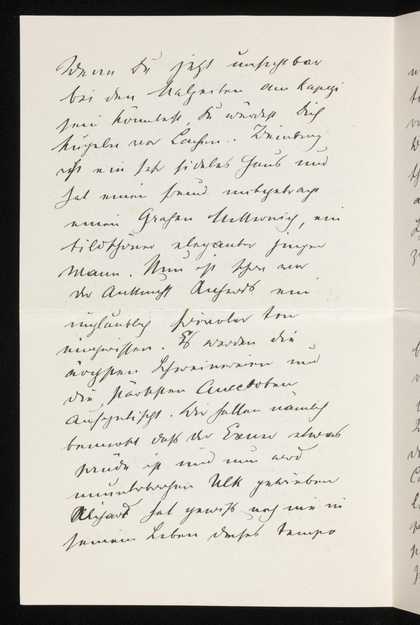 Wenn Du jetzt unsichtbar
bei den Malzeiten am Kapezi
sein könntest, Du würdest Dich
kugeln vor Lachen.
ist ein sehr fideles Haus und
hat einen Freund mitgebracht
einen Grafen Metternich, ein
bildschöner eleganter junger
Mann. Nun ist schon vor
der Ankunft Richards ein
unglaublich frivoler Ton
eingerissen. Es werden die
höchsten Schweinereien und
die stärksten Anecdoten
aufgetischt. Sie hatten nämlich
bemerkt daß der etwas
prüde ist und nun wird
ununterbrochen Ulk getrieben
Richard hat gewiß noch nie in
seinem Leben dieses Tempo